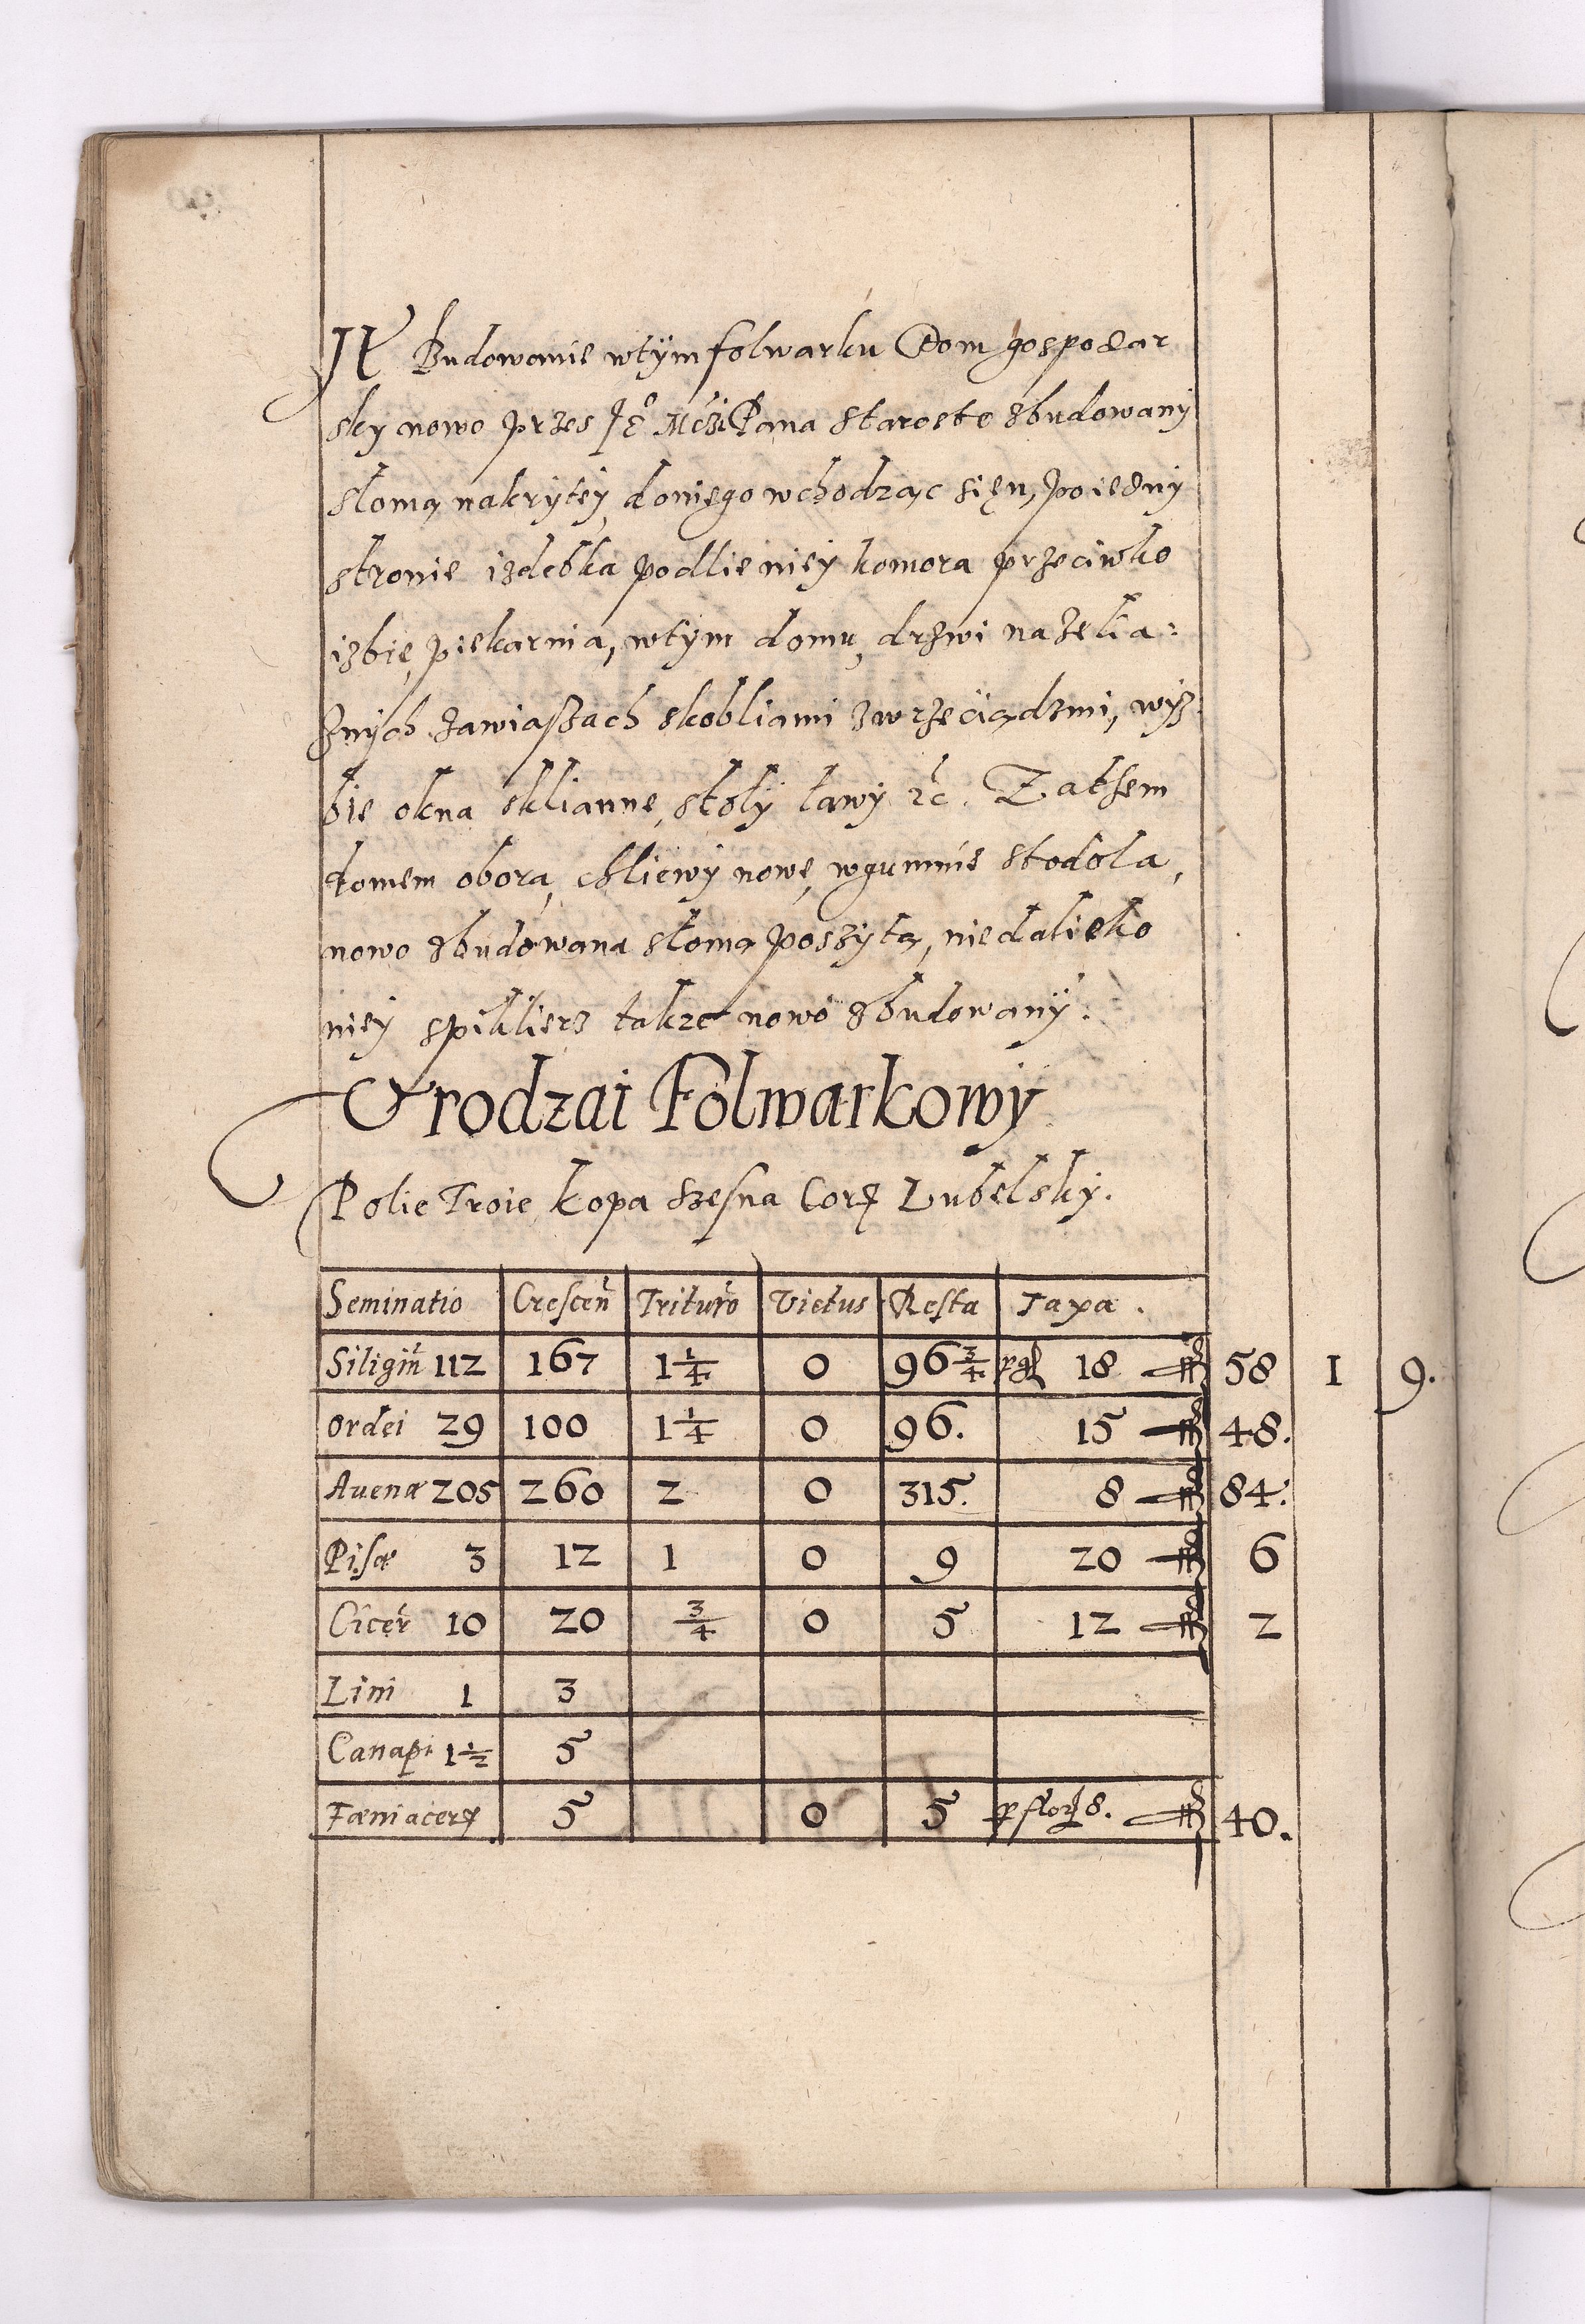 It Budowanie wtÿm folwarku Dom gospodar
sky nowo przes Je⁰ Mczi Pana Staroste zbudowany
słomą nakrÿtÿ, doniego wchodząc sięń, poiedny
stronie izdebka podlie niey komora przeciwko
izbie, piekarnia, wtÿm domu, drzwi na żelia:
znÿch zawiaszach skobliami zwrzeciądzmi, wÿz
bie okna sklianne, stoły ławy ꝛc. Zathem
domem obora, chliewÿ nowe, wgumnie stodoła,
nowo zbudowana słomą poszÿta, niedalieko
niey spikliers takze nowo zbudowanÿ.
Urodzai Folwarkowy
Polie Troie kopa szesna Corꝝ Lubelsky.
Seminatio Crescen Trituro Victus Resta Taxa.
Siligin 112 167 1 1/4 0 96 3/4 p gſ 18 58 1 9.
Ordei 29 100 1 1/4 0 96. 15 48.
Auenæ 205 260 2 0 315. 8 84.
Pisæ 3 12 1 0 9 20 6
Cicer 10 20 3/4 0 5 12 2
Lini 1 3
Canapi 1 1/2 5
Fæni acerꝝ 5 0 5 p florꝝ 8. 40.